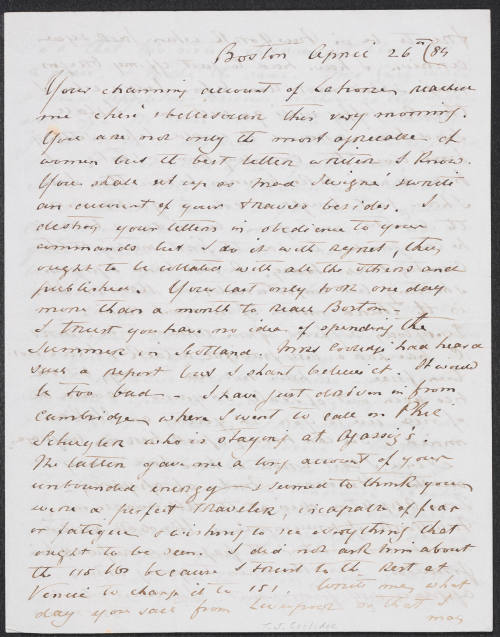 Boston April 26th/84
Your charming account of Lahore reached
me chère & belle soeur this very morning.
You are not only the most agreeable of
women but the best letter writer I know.
You shall set up as Mad Sevigné & write
an account of your travels besides. I
destroy your letters in obedience to your
commands but I do it with regret, they
ought to be collated with all the others and
published. Your last only took one day
more than a month to reach Boston -
I trust you have no idea of spending the
Summer in Scotland. Mrs Coolidge had heard
such a report but I shant believe it. It would
be too bad - I have just driven in from
Cambridge where I went to call on Phil
Schuyler who is staying at Agassiz's.
The latter gave me a long account of your
unbounded energy & seemed to think you
were a perfect traveler incapable of fear
or fatigue & wishing to see everything that
ought to be seen. I did not ask him about
the 115 lbs because I trust to the rest at
Venice to change it to 151. Write me what
day you sail from Liverpool so that I
may
T. J. Coolidge